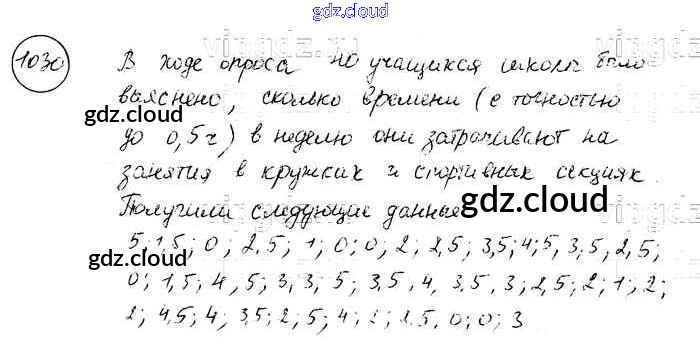 gdz.cloud
1030
В ходе опроса 40 учащихся школы было
выяснено, сколько времени (с точностью
gdz.cloud
до 0,5 ч) в неделю они затрачивают на
занятия в кружках и спортивных секциях.
gdz.cloud
Получили следующие данные
5; 1,5; 0; 2,5; 1; 0; 0; 2; 2,5; 3,5; 4; 5, 3,5, 2,5;
gdz.cloud
0; 1,5; 4,5; 3, 3; 5; 3,5, 4, 3,5, 3; 2,5; 2; 1; 2;
2; 4,5; 4; 3,5; 2; 5; 4; 2,5, 0; 0; 3
gdz.cloud